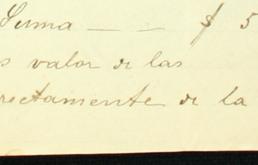 Suma — — $ 5
s valor de las
rectamente de la